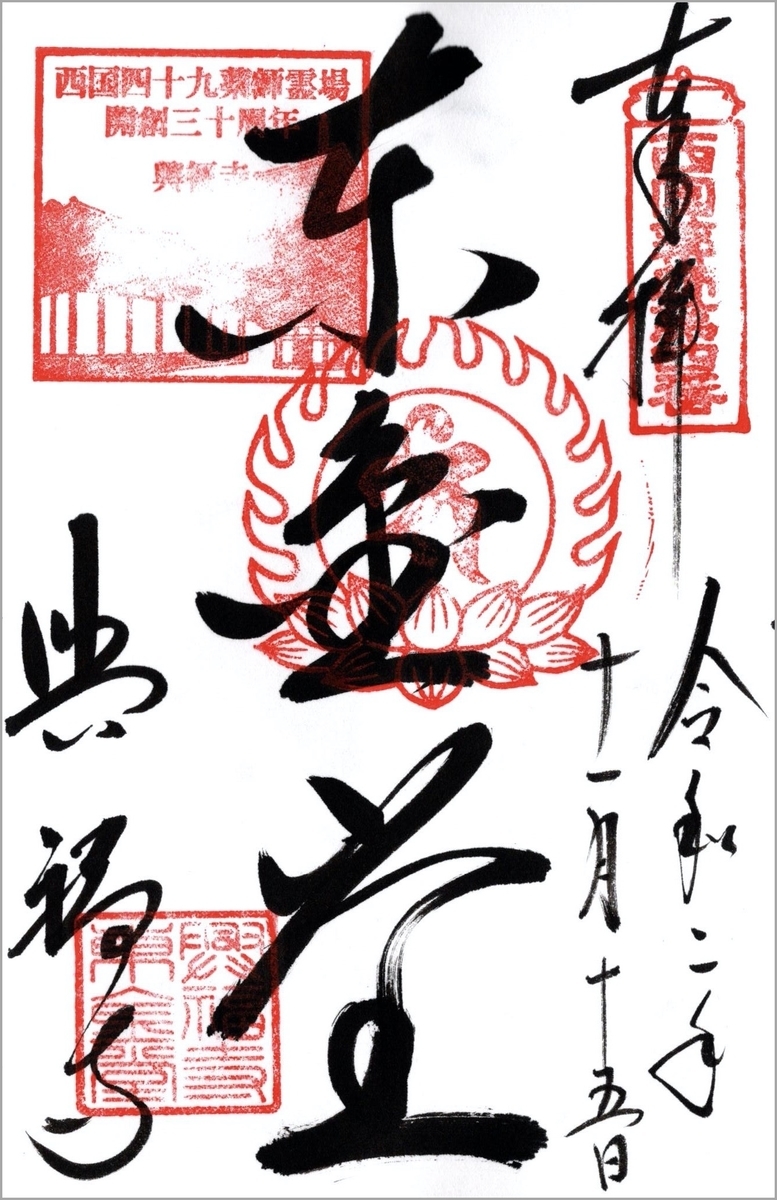 奉拝
令和二年
十一月十五日
東金堂
興福寺
西国薬師第四番
西国四十九薬師霊場
開創三十周年
興福寺
興福寺
東金堂